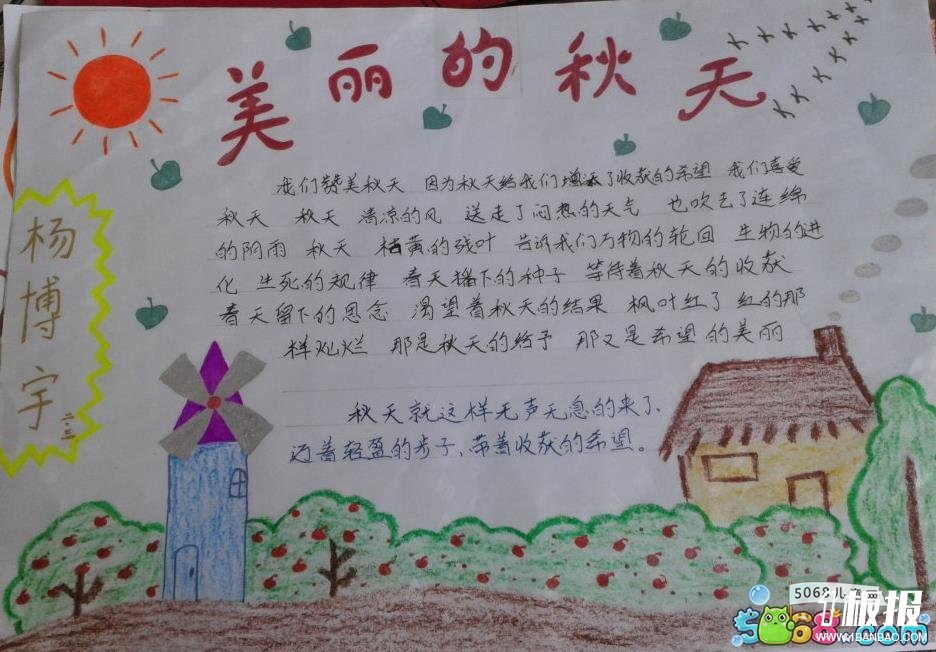 美丽的秋天
杨博宇
二.三
我们赞美秋天 因为秋天给我们增添了收获的希望 我们喜爱
秋天 秋天 清凉的风 送走了闷热的天气 也吹去了连绵
的阴雨 秋天 枯黄的残叶 告诉我们万物的轮回 生物的进
化 生死的规律 春天播下的种子 等待着秋天的收获
春天留下的思念 渴望着秋天的结果 枫叶红了 红的那
样灿烂 那是秋天的给予 那又是希望的美丽
秋天就这样无声无息的来了、
迈着轻盈的步子、带着收获的希望。
5068儿 网
板报
5068.com
WWW.1BANBAO.COM